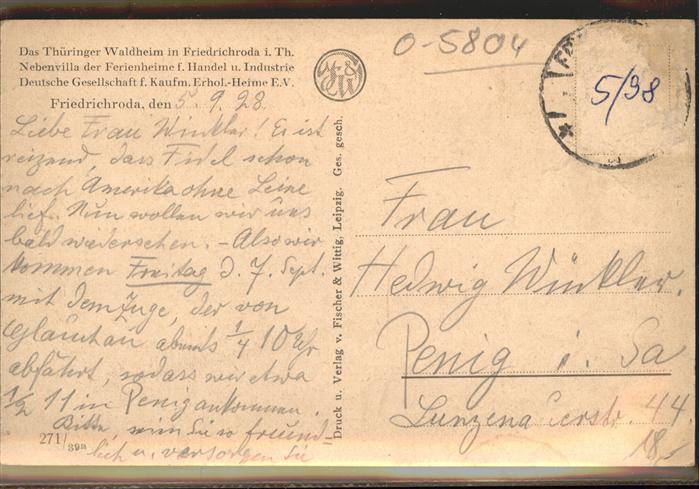 Das Thüringer Waldheim in Friedrichroda i. Th.
Nebenvilla der Ferienheime f. Handel u. Industrie
Deutsche Gesellschaft f. Kaufm. Erhol.-Heime E.V.
Friedrichroda, den 5. 9. 28.
Liebe Frau Winkler! Es ist
reizend, dass Fidel schon
nach Amerika ohne Leine
lief. Nun wollen wir uns
bald wiedersehen. - Also wir
kommen Freitag d. 7. Sept.
mit dem Zuge, der von
Glauchau abends 1/4 10 Uhr
abfährt, sodass wir etwa
1/2 11 in Penig ankommen.
Bitte, sein Sie so freund-
lich u. versorgen Sie
271/39a
Druck u. Verlag v. Fischer & Wittig, Leipzig. Ges. gesch.
0-5804
5/38
Frau
Hedwig Winkler.
Penig i. Sa
Lunzenauerstr. 44
18,-